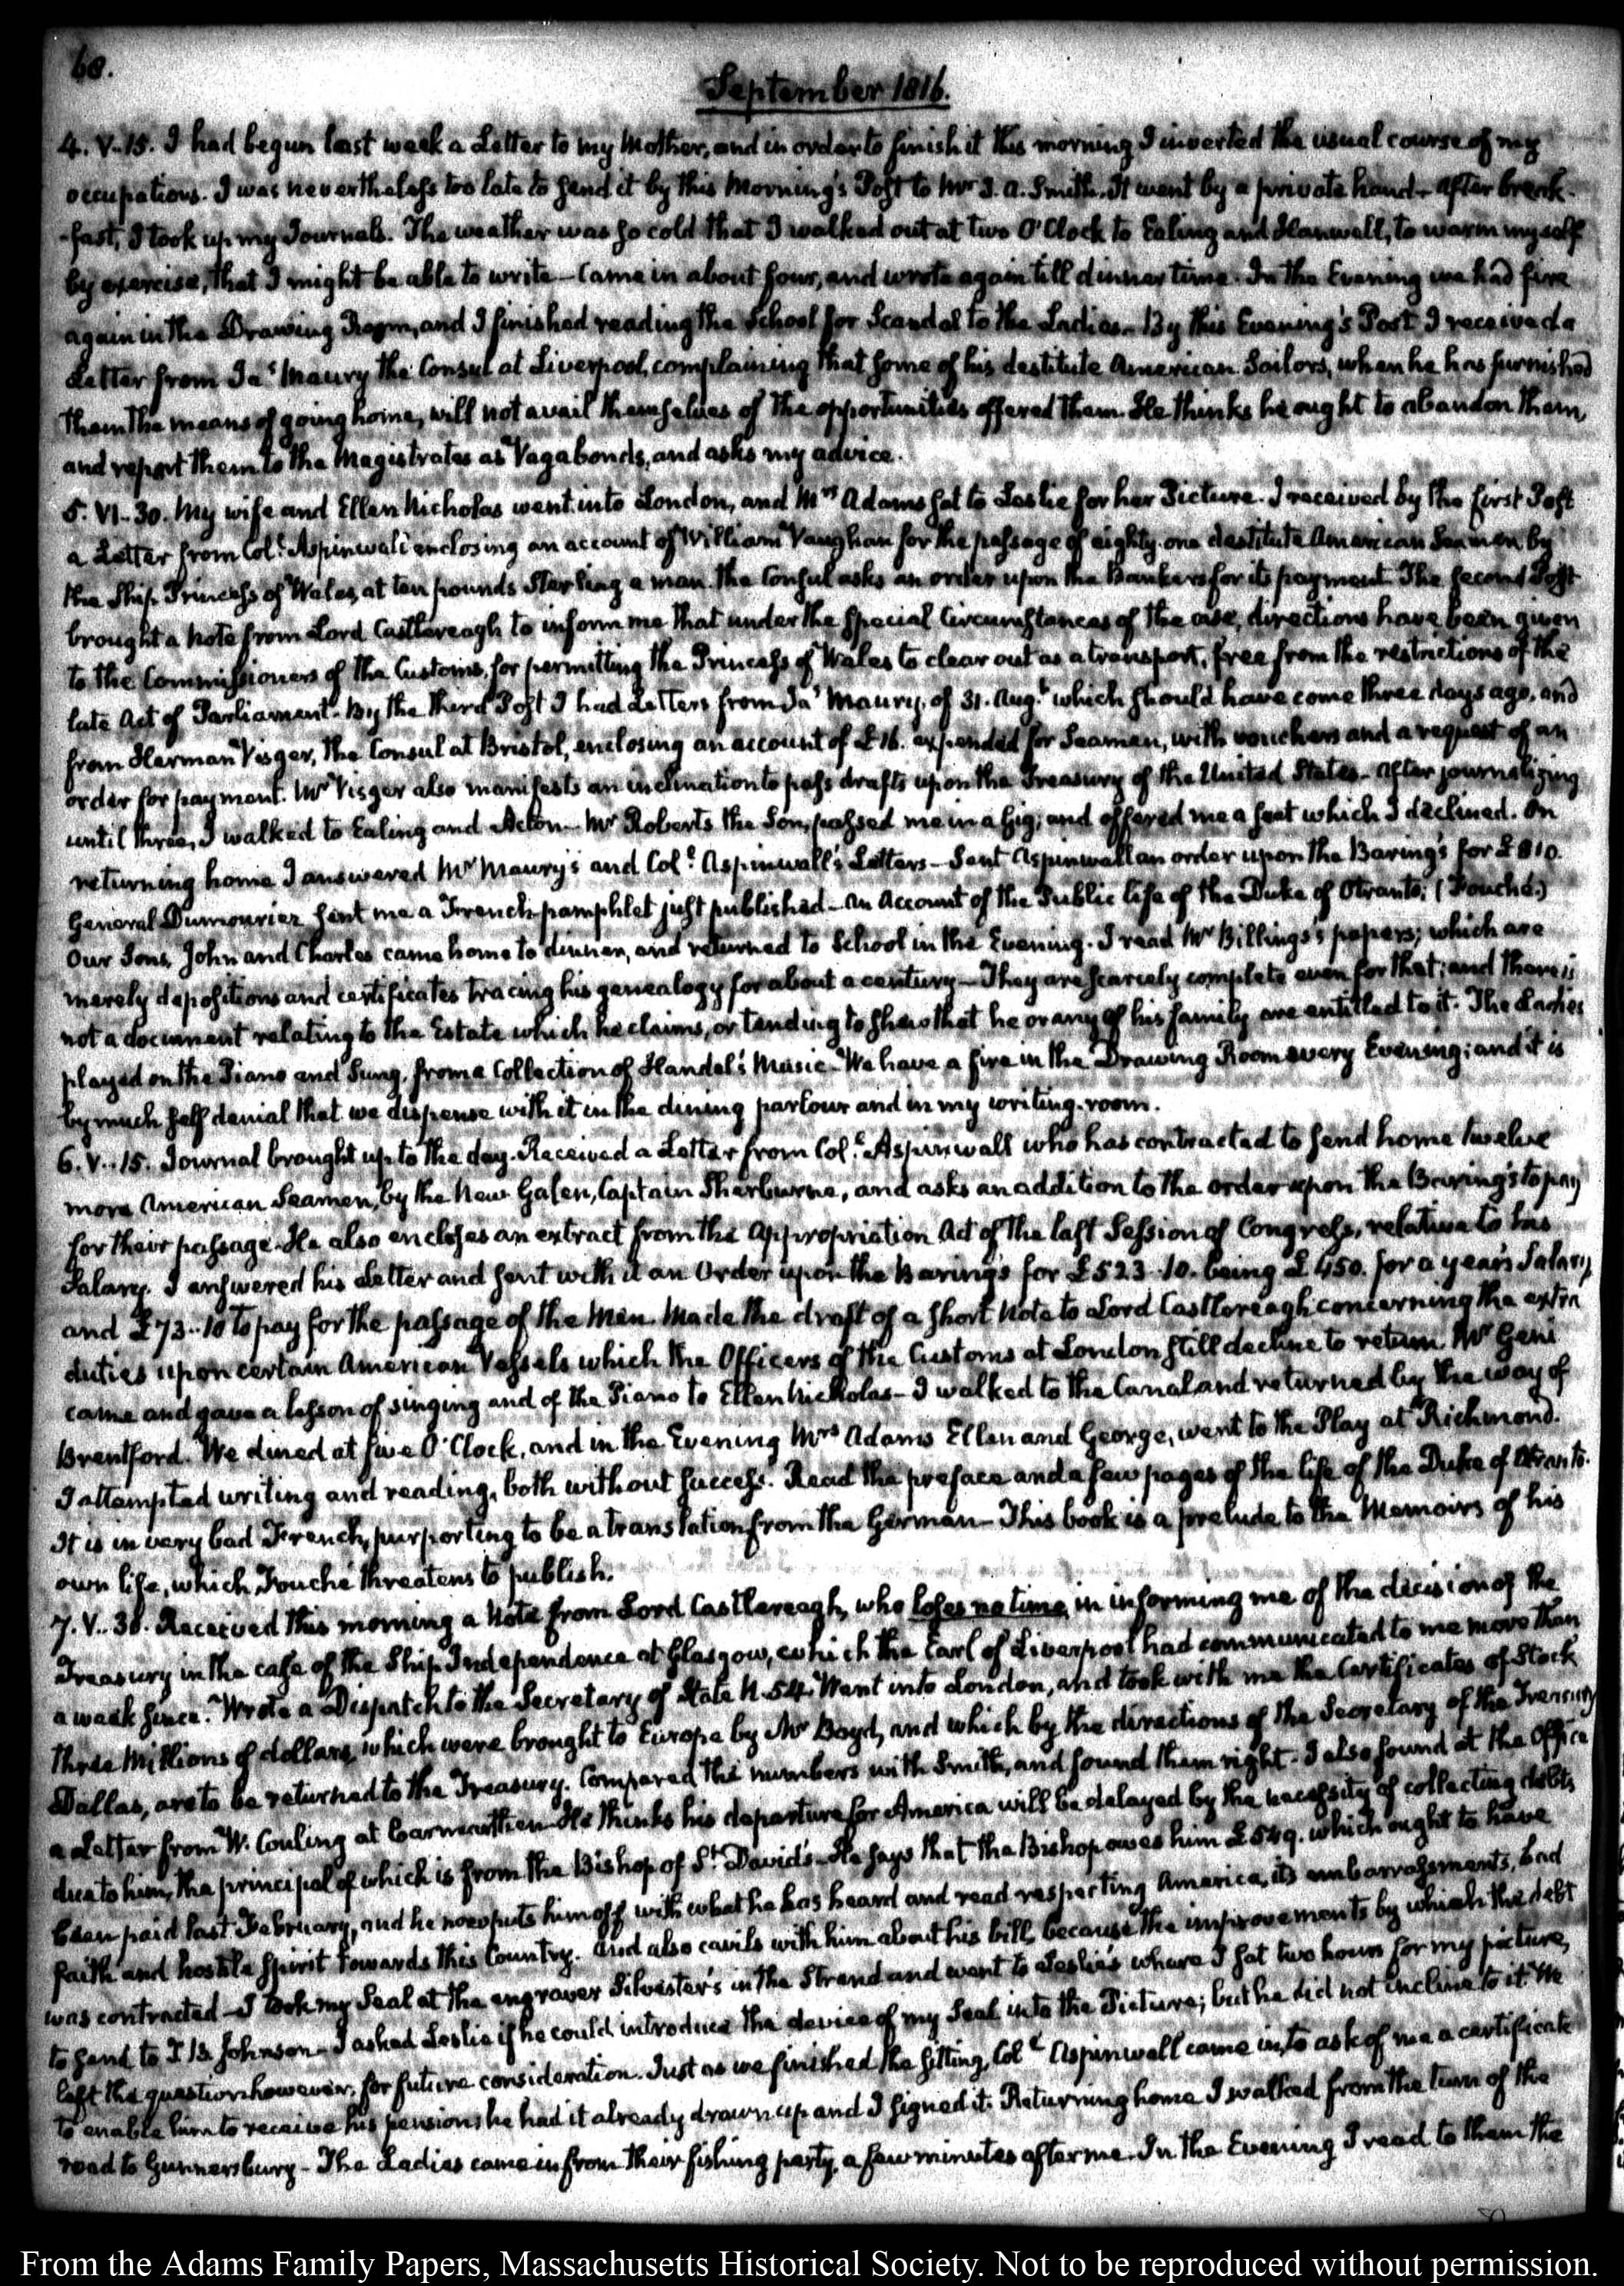 60.
September 1816.
4. V..15. I had begun last week a Letter to my Mother, and in order to finish it this morning I inverted the usual course of my
occupations. I was nevertheless too late to send it by this Morning's Post to Mr J. A. Smith. It went by a private hand – After break-
-fast, I took up my Journals. The weather was so cold that I walked out at two O'Clock to Ealing and Hanwell, to warm myself
by exercise, that I might be able to write – Came in about four, and wrote again till dinner time. In the Evening we had fire
again in the Drawing Room, and I finished reading the School for Scandal to the Ladies – By this Evening's Post I received a
Letter from Jas Maury the Consul at Liverpool, complaining that some of his destitute American Sailors, when he has furnished
them the means of going home, will not avail themselves of the opportunities offered them. He thinks he ought to abandon them,
and report them to the Magistrates as Vagabonds, and asks my advice.
5. VI..30. My wife and Ellen Nicholas went into London, and Mrs Adams sat to Leslie for her Picture. I received by the first Post
a Letter from Coll Aspinwall enclosing an account of William Vaughan for the passage of eighty-one destitute American Seamen by
the Ship Princess of Wales, at ten pounds Sterling a man. The Consul asks an order upon the Bankers for its payment. The second Post
brought a Note from Lord Castlereagh to inform me that under the special Circumstances of the case, directions have been given
to the Commissioners of the Customs, for permitting the Princess of Wales to clear out as a transport, free from the restrictions of the
late Act of Parliament. By the third Post I had Letters from Jas Maury, of 31. Augt which should have come three days ago, and
from Harman Visger, the Consul at Bristol, enclosing an account of £16. expended for Seamen, with vouchers and a request of an
order for payment. Mr Visger also manifests an inclination to pass drafts upon the Treasury of the United States – After journalizing
until three, I walked to Ealing and Acton – Mr Roberts the Son, passed me in a Gig; and offered me a seat which I declined. On
returning home I answered Mr Maury's and Coll Aspinwall's Letters – Sent Aspinwall an order upon the Baring's for £810.
General Dumouriez sent me a French pamphlet just published – An Account of the Public life of the Duke of Otranto; (Fouché.)
Our Sons, John and Charles came home to dinner, and returned to School in the Evening. I read Mr Billings's papers; which are
merely depositions and certificates tracing his genealogy for about a century – They are scarcely complete even for that; and there is
not a document relating to the Estate which he claims, or tending to show that he or any of his family are entitled to it. The Ladies
played on the Piano and Sung, from a Collection of Handel's Music – We have a fire in the Drawing Room every Evening; and it is
by much self denial that we dispense with it in the dining parlour and in my writing-room.
6. V..15. Journal brought up to the day. Received a Letter from Coll Aspinwall who has contracted to send home twelve
more American Seamen, by the New Galen, Captain Sherburne, and asks an addition to the order upon the Baring's to pay
for their passage. He also encloses an extract from the Appropriation Act of the last Session of Congress, relative to his
Salary. I answered his Letter and sent with it an Order upon the Baring's for £523..10. being £450. for a year's Salary,
and £73..10 to pay for the passage of the Men. Made the draft of a short Note to Lord Castlereagh concerning the extra
duties upon certain American Vessels which the Officers of the Customs at London still decline to return. Mr Geni
came and gave a lesson of singing and of the Piano to Ellen Nicholas – I walked to the Canal and returned by the way of
Brentford. We dined at five O'Clock, and in the Evening Mrs Adams Ellen and George, went to the Play at Richmond.
I attempted writing and reading, both without success. Read the preface and a few pages of the life of the Duke of Otranto.
It is in very bad French, purporting to be a translation from the German – This book is a prelude to the Memoirs of his
own life, which Fouché threatens to publish.
7. V..30. Received this morning a Note from Lord Castlereagh, who loses no time in informing me of the decision of the
Treasury in the case of the Ship Independence at Glasgow, which the Earl of Liverpool had communicated to me more than
a week since. Wrote a Dispatch to the Secretary of State N. 54. Went into London, and took with me the Certificates of Stock
three Millions of dollars, which were brought to Europe by Mr Boyd, and which by the directions of the Secretary of the Treasury
Dallas, are to be returned to the Treasury. Compared the numbers with Smith, and found them right. I also found at the Office
a Letter from W. Couling at Carmarthen – He thinks his departure for America will be delayed by the necessity of collecting debts
due to him, the principal of which is from the Bishop of St David's – He says that the Bishop owes him £549. which ought to have
been paid last February, and he now puts him off with what he has heard and read respecting America, its embarrassments, bad
faith and hostile spirit towards this Country. And also cavils with him about his bill, because the improvements by which the debt
was contracted – I took my Seal at the engraver Silvester's in the Strand and went to Leslie's where I sat two hours for my picture,
to send to J. B. Johnson – I asked Leslie if he could introduce the device of my Seal into the Picture; but he did not incline to it. We
left the question however, for future consideration. Just as we finished the sitting, Coll Aspinwall came in, to ask of me a certificate
to enable him to receive his pension; he had it already drawn up and I signed it. Returning home I walked from the turn of the
road to Gunnersbury – The Ladies came in from their fishing party, a few minutes after me. In the Evening I read to them the
From the Adams Family Papers, Massachusetts Historical Society. Not to be reproduced without permission.